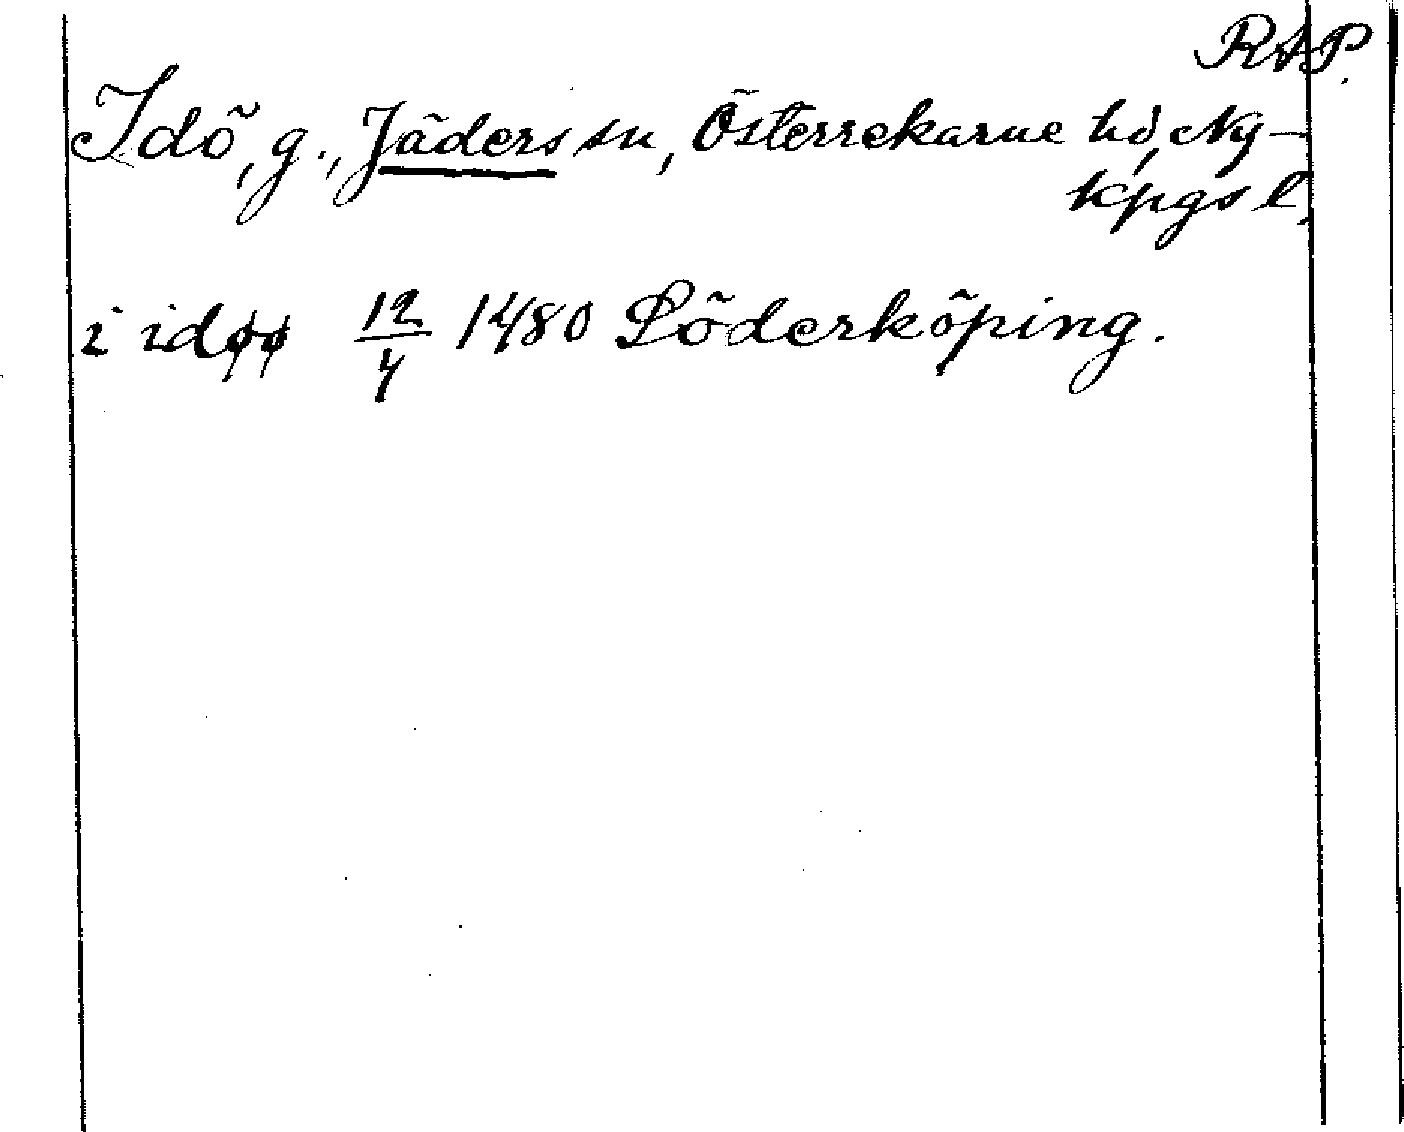 RAP.
Idö, g., Jäders sn, Österrekarne hd, Ny-
kpgs l.
i idøø 12/4 1480 Söderköping.